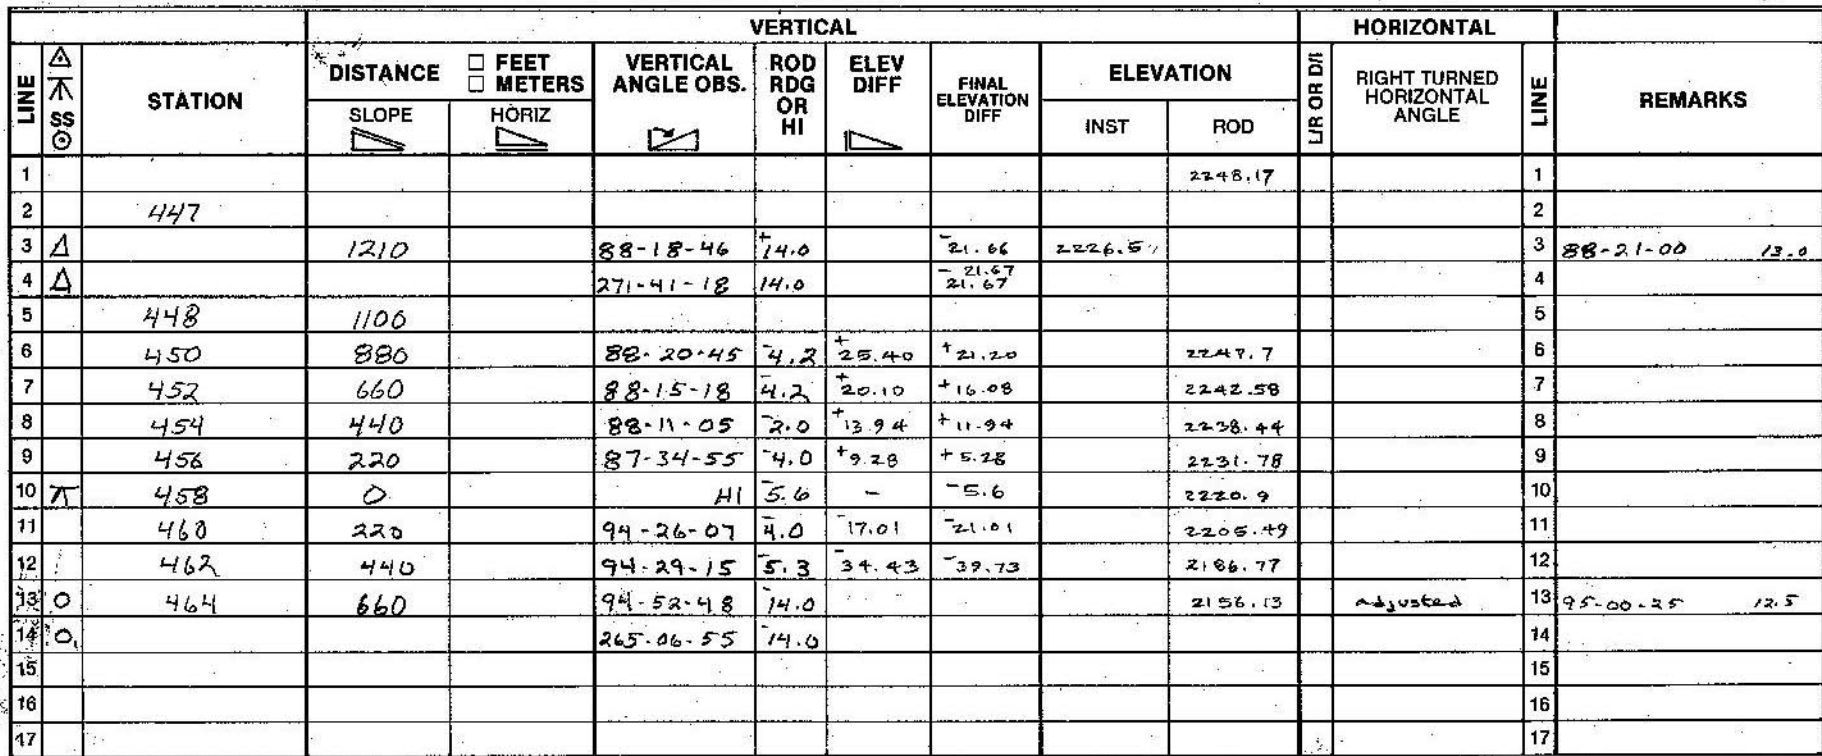 VERTICAL HORIZONTAL
LINE SS STATION DISTANCE □ FEET □ METERS VERTICAL ANGLE OBS. ROD RDG OR HI ELEV DIFF FINAL ELEVATION DIFF ELEVATION L/R OR D/I RIGHT TURNED HORIZONTAL ANGLE LINE REMARKS
SLOPE HORIZ INST ROD
1 2248.17 1
2 447 2
3 △ 1210 88-18-46 +14.0 -21.66 2226.5 3 88-21-00 13.0
4 △ 271-41-18 14.0 -21.67 21.67 4
5 448 1100 5
6 450 880 88-20-45 -4.2 +25.40 +21.20 2247.7 6
7 452 660 88-15-18 -4.2 +20.10 +16.08 2242.58 7
8 454 440 88-11-05 -2.0 +13.94 +11.94 2238.44 8
9 456 220 87-34-55 -4.0 +9.28 +5.28 2231.78 9
10 458 0 HI -5.6 - -5.6 2220.9 10
11 460 220 94-26-07 -4.0 -17.01 -21.01 2205.49 11
12 462 440 94-29-15 -5.3 -34.43 -39.73 2186.77 12
13 O 464 660 94-52-48 -14.0 2156.13 adjusted 13 95-00-25 12.5
14 O 265-06-55 -14.0 14
15 15
16 16
17 17